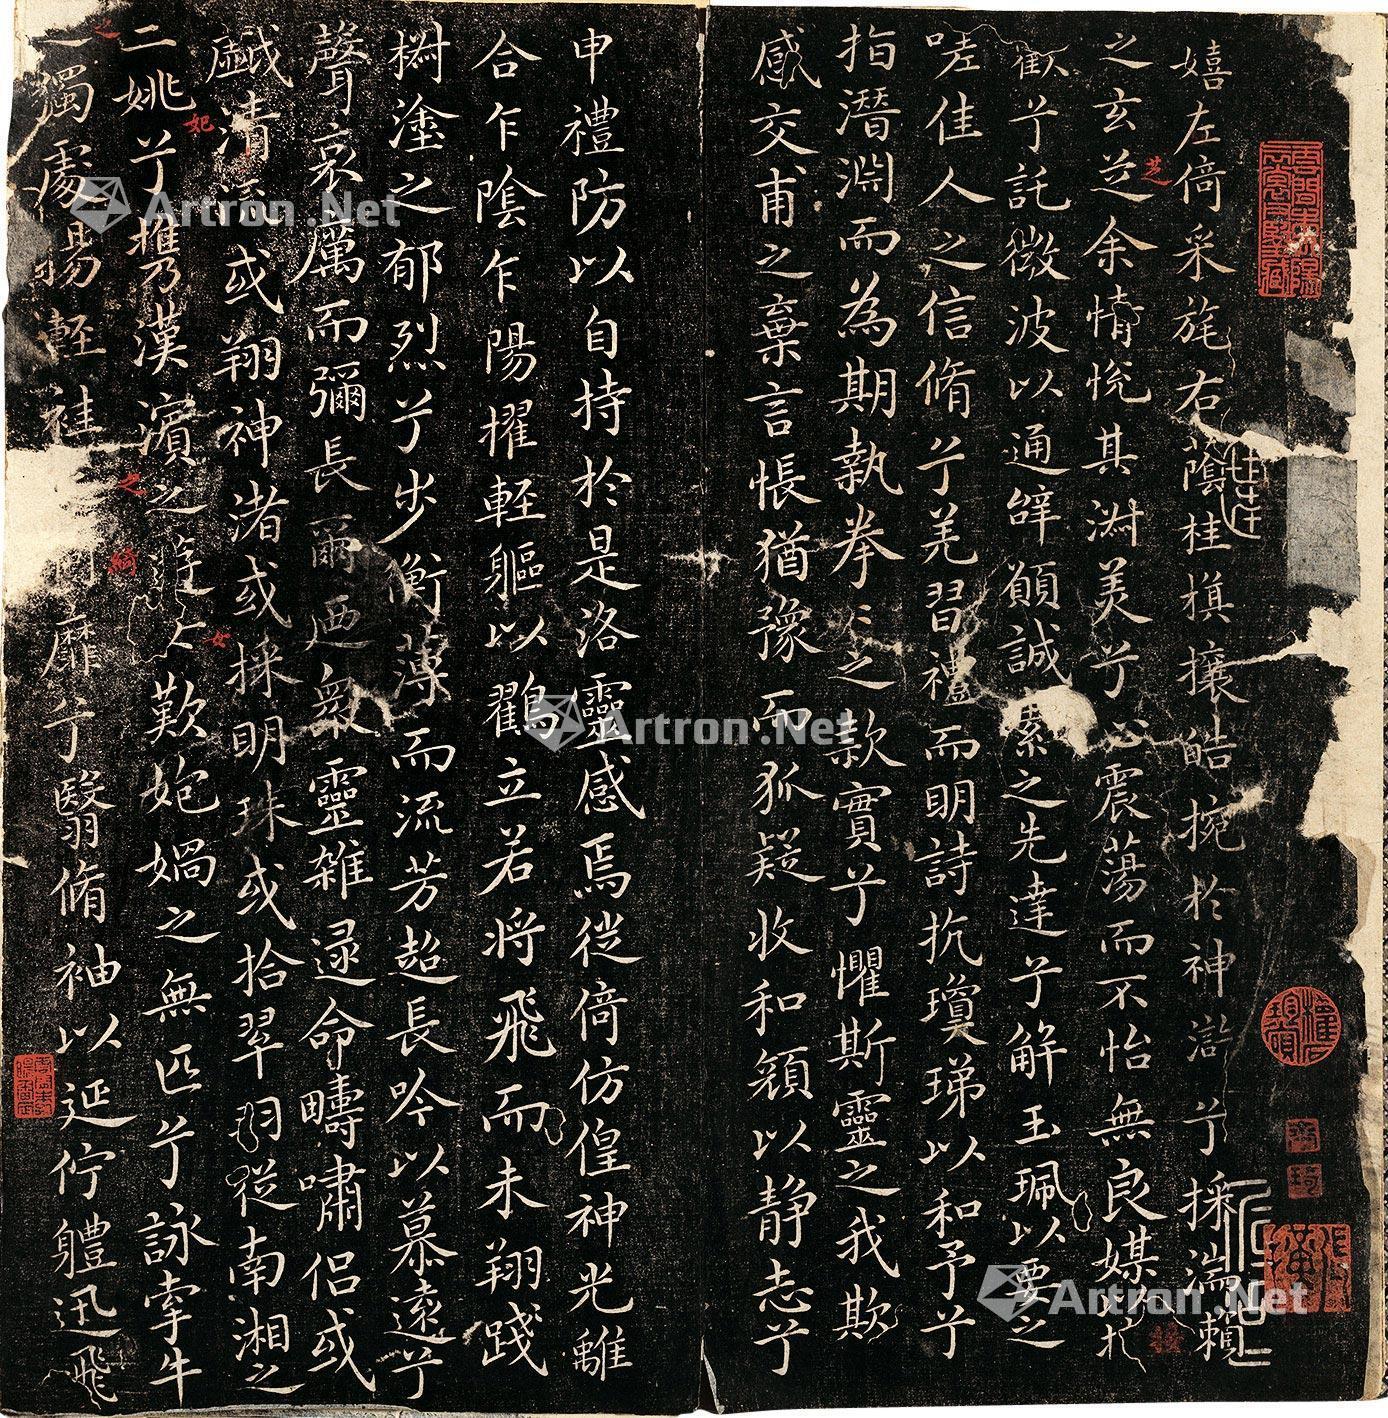 嬉左倚采旄右蔭桂旗攘皓捥於神滸兮採湍瀨
之玄芝余情恱其淑美兮心震蕩而不怡無良媒以
歡兮託微波以通辝願誠素之先達兮解玉珮以要之
嗟佳人之信脩兮羌習禮而明詩抗瓊珶以和予兮
指潛淵而為期執拳〻之款實兮懼斯靈之我欺
感交甫之棄言悵猶豫而狐疑收和顏以静志兮
申禮防以自持於是洛靈感焉徙倚仿偟神光離
合乍陰乍陽擢輕軀以鶴立若將飛而未翔踐
椒塗之郁烈兮步衡薄而流芳超長吟以慕遠兮
聲哀厲而彌長爾迺衆靈雜遝命疇嘯侣或
戲清流或翔神渚或採明珠或拾翠羽從南湘之
二姚兮攜漢濱之歎匏媧之無匹兮詠牽牛
獨處揚輕袿靡兮翳脩袖以延佇體迅飛
芝
之
妃
之
綺
女
Artron.Net
Artron.Net
Artron.Net